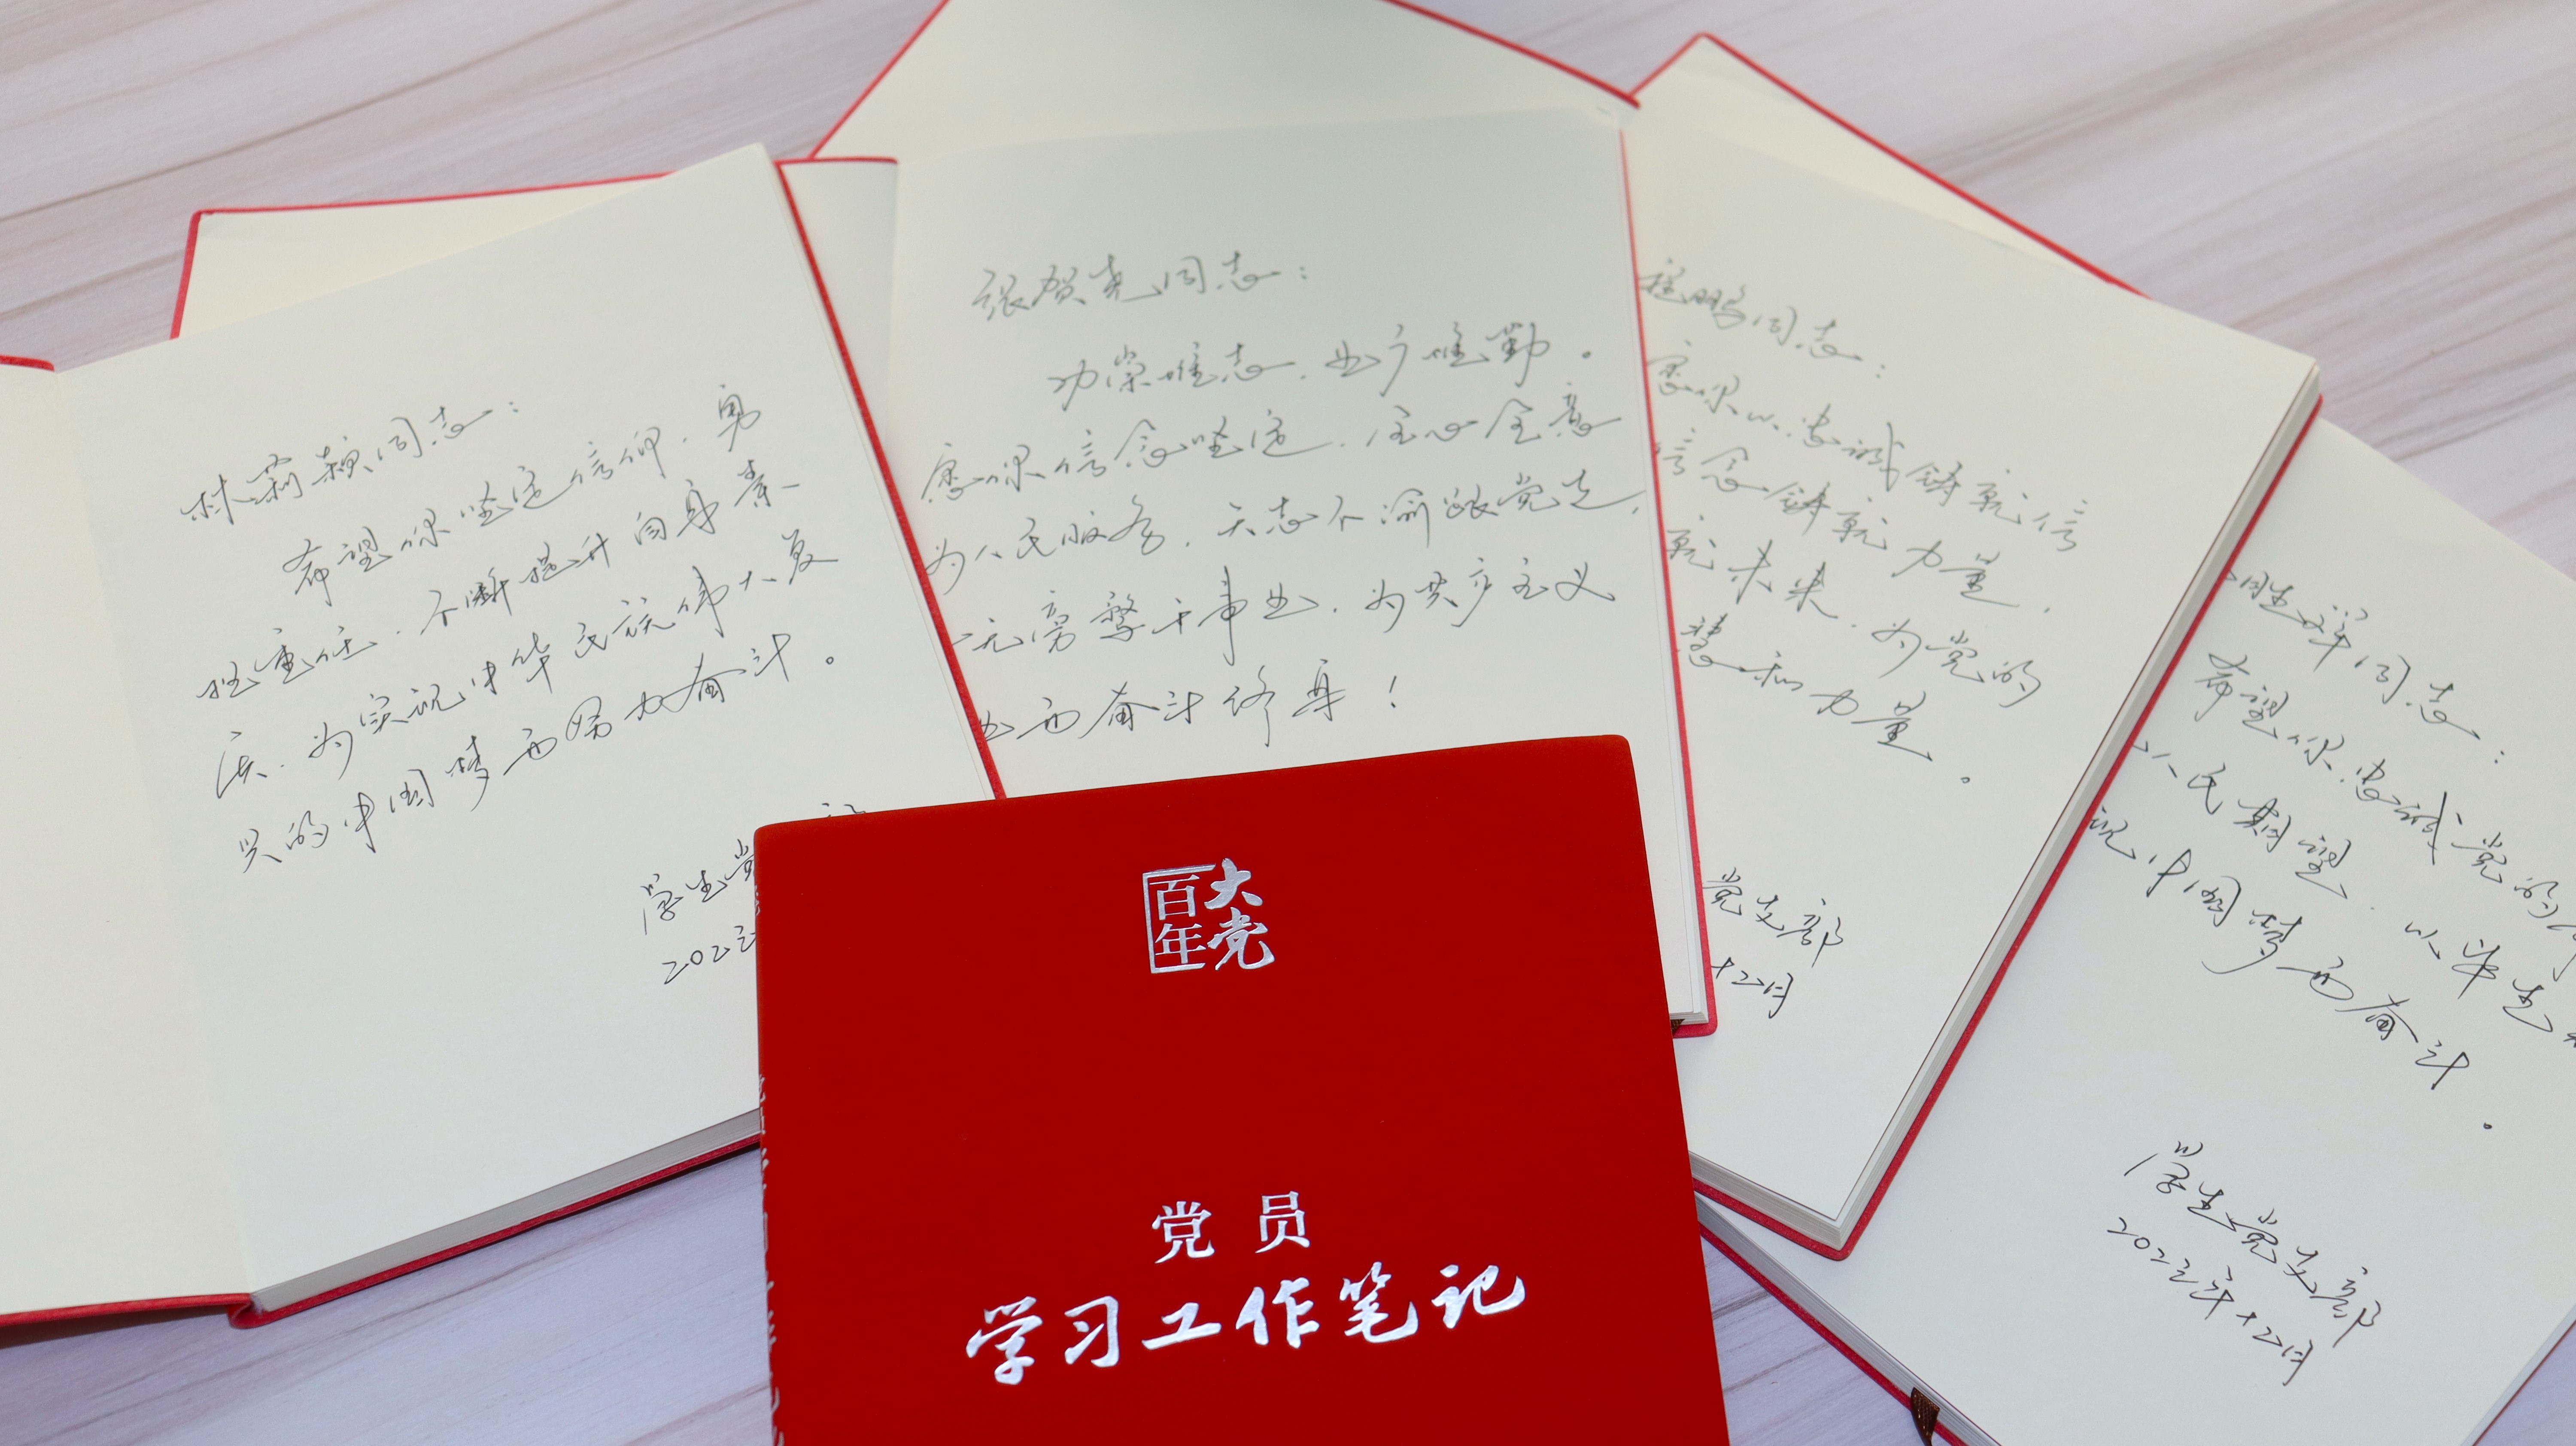 林莉颖同志：
希望你坚定信仰，勇
担重任，不断提升自身素
质，为实现中华民族伟大复
兴的中国梦而努力奋斗。
学生党
2022年
张贺尧同志：
功崇惟志，业广惟勤。
愿你信念坚定，全心全意
为人民服务，矢志不渝跟党走，
一无旁骛干事业，为共产主义
而奋斗终身！
程鹏同志：
愿你以忠诚铸就信
信念铸就力量，
就未来，为党的
慧和力量。
党支部
十二月
同志：
希望你忠诚党的
人民期望，以毕生
现中国梦而奋斗。
学生党支部
2022年十二月
大党
百年
党员
学习工作笔记